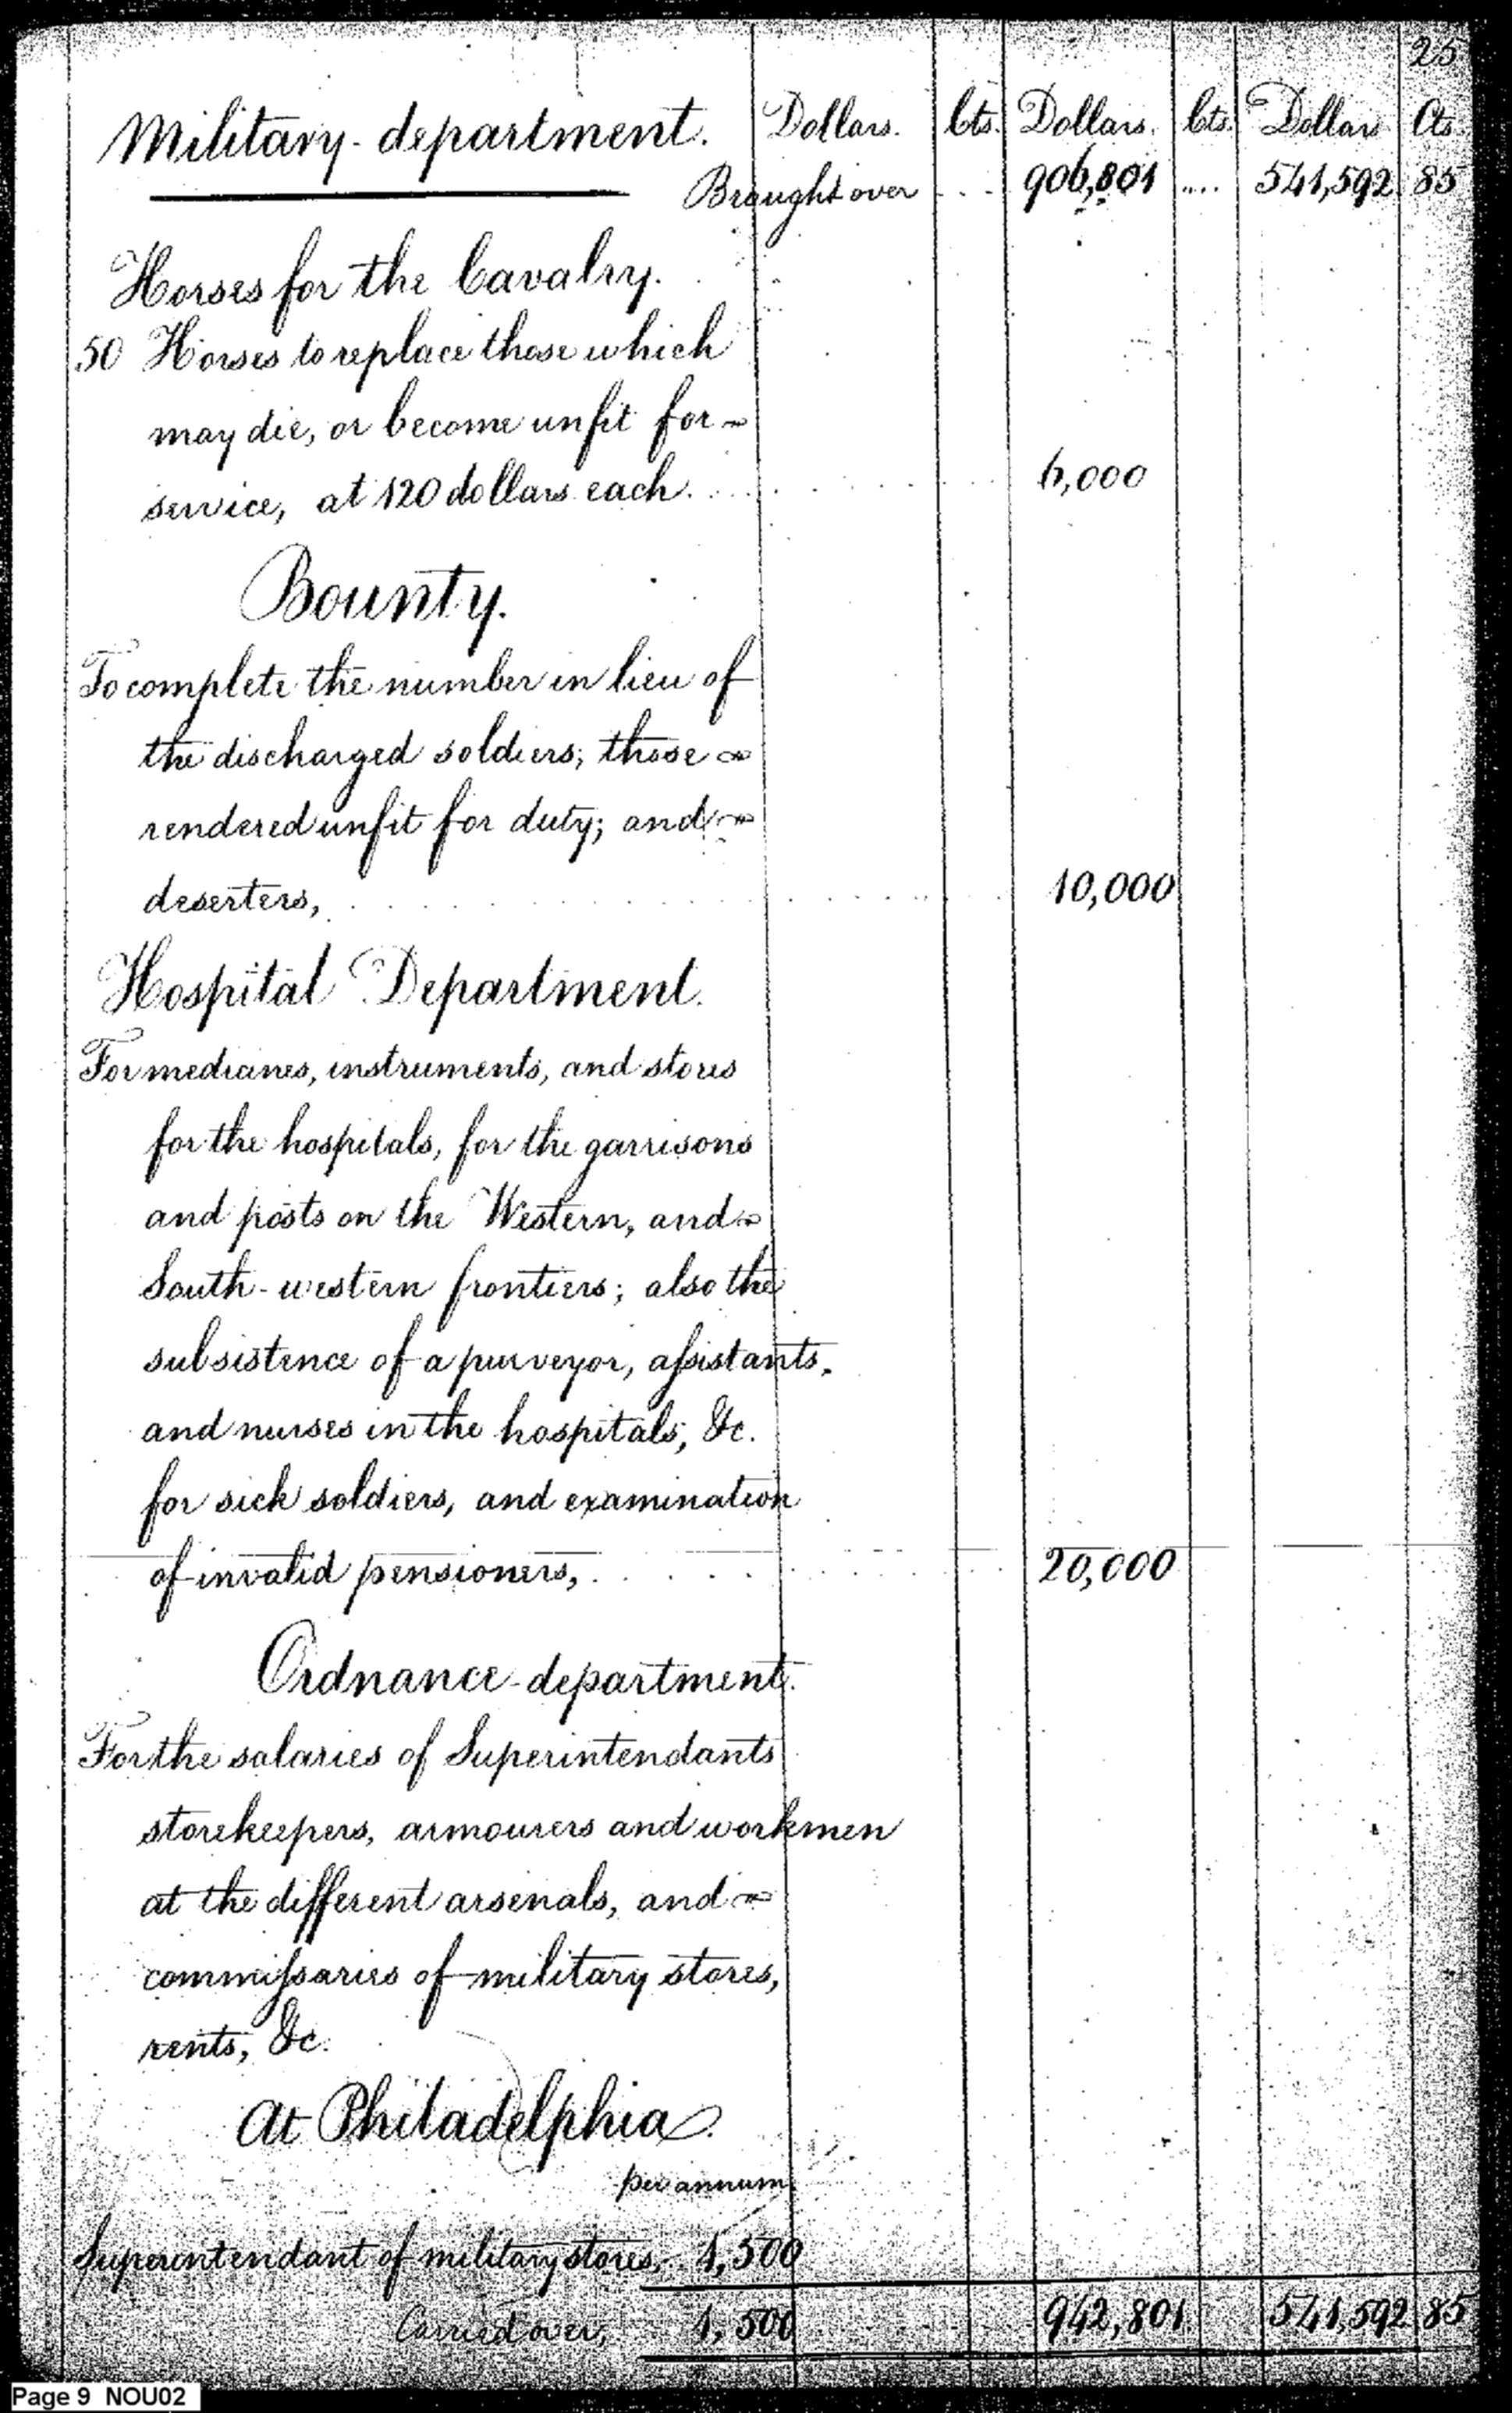 25
Military-department. Dollars. Cts. Dollars. Cts. Dollars Cts.
Brought over ... 906,801 .... 541,592 85
Horses for the Cavalry.
50 Horses to replace those which
may die, or become unfit for
service, at 120 dollars each. ... 6,000
Bounty.
To complete the number in lieu of
the discharged soldiers; those
rendered unfit for duty; and
deserters, ... 10,000
Hospital Department.
For medicines, instruments, and stores
for the hospitals, for the garrisons
and posts on the Western, and
South-western frontiers; also the
subsistence of a purveyor, assistants,
and nurses in the hospitals, &c.
for sick soldiers, and examination
of invalid pensioners, ... 20,000
Ordnance-department.
For the salaries of Superintendants
storekeepers, armourers and workmen
at the different arsenals, and
commissaries of military stores,
rents, &c.
At Philadelphia.
per annum
Superintendant of military stores, 1,500
Carried over, 1,500 942,801 541,592 85
Page 9 NOU02